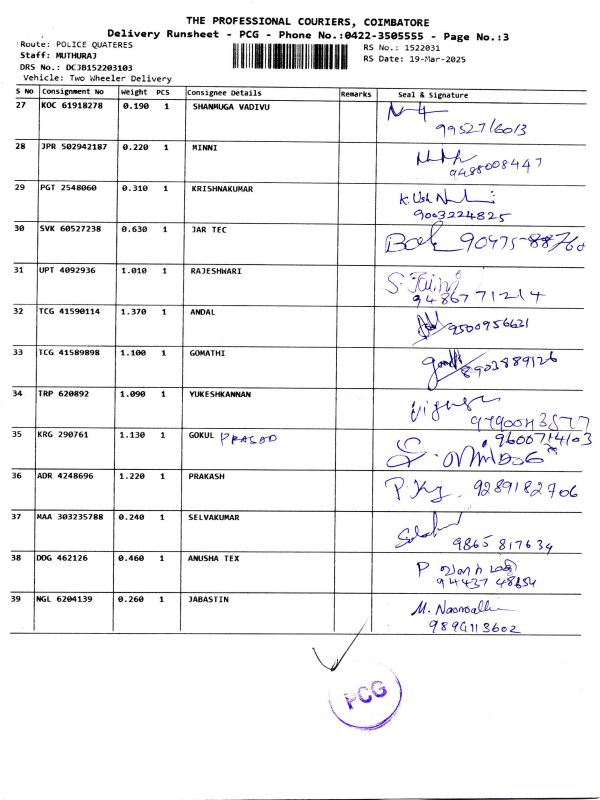 THE PROFESSIONAL COURIERS, COIMBATORE
Delivery Runsheet - PCG - Phone No.:0422-3505555 - Page No.:3
Route: POLICE QUATERES
RS No.: 1522031
Staff: MUTHURAJ
RS Date: 19-Mar-2025
DRS No.: DCJB152203103
Vehicle: Two Wheeler Delivery
S No Consignment No Weight PCS Consignee Details Remarks Seal & Signature
27 KOC 61918278 0.190 1 SHANMUGA VADIVU
9952716013
28 JPR 502942187 0.220 1 MINNI
9488008447
29 PGT 2548060 0.310 1 KRISHNAKUMAR
9003224825
30 SVK 60527238 0.630 1 JAR TEC
31 UPT 4092936 1.010 1 RAJESHWARI
9486771214
32 TCG 41590114 1.370 1 ANDAL
9500956631
33 TCG 41589898 1.100 1 GOMATHI
8903889126
34 TRP 620892 1.090 1 YUKESHKANNAN
35 KRG 290761 1.130 1 GOKUL PRASOD
9600714103
36 ADR 4248696 1.220 1 PRAKASH
9289182706
37 MAA 303235788 0.240 1 SELVAKUMAR
9865817634
38 DDG 462126 0.460 1 ANUSHA TEX
P
39 NGL 6204139 0.260 1 JABASTIN
9894113602
PCG